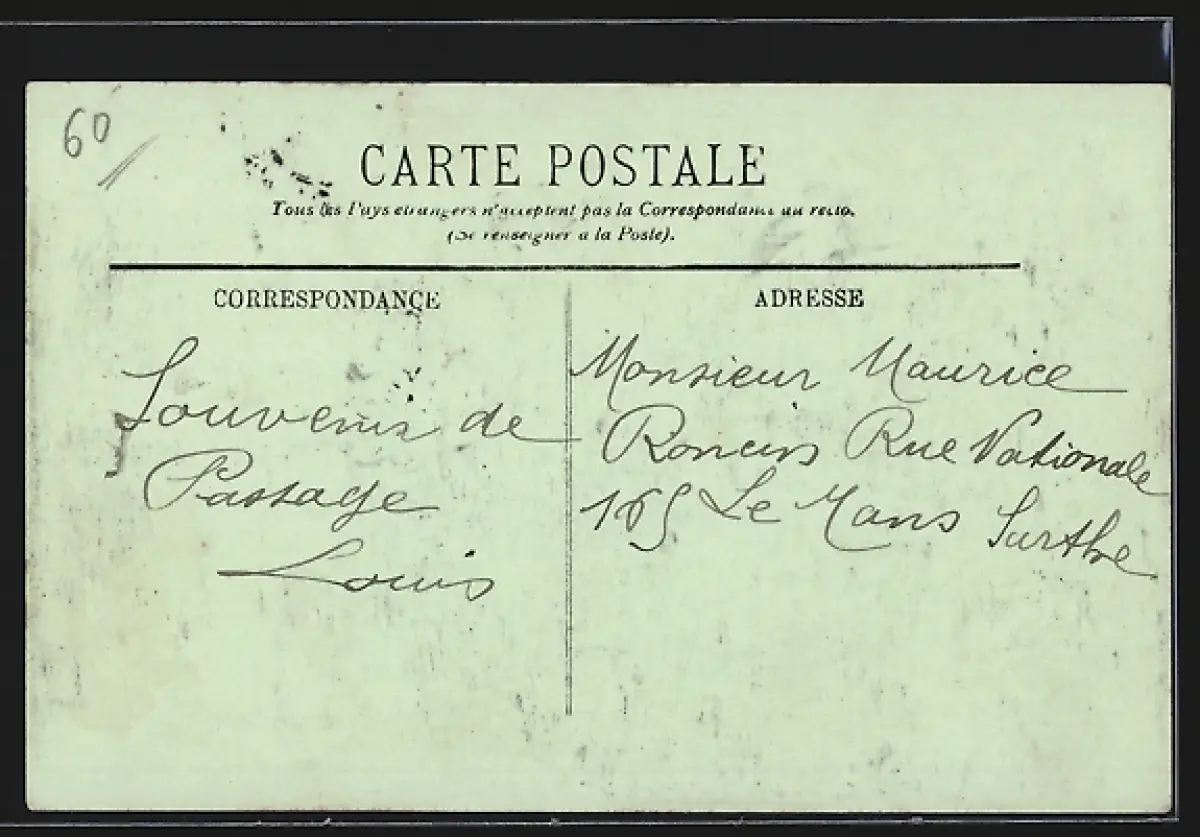 60
CARTE POSTALE
Tous les Pays etrangers n'acceptent pas la Correspondance au recto.
(Se renseigner a la Poste).
CORRESPONDANCE
Souvenir de
Passage
Louis
ADRESSE
Monsieur Maurice
Roncin Rue Nationale
165 Le Mans Sarthe